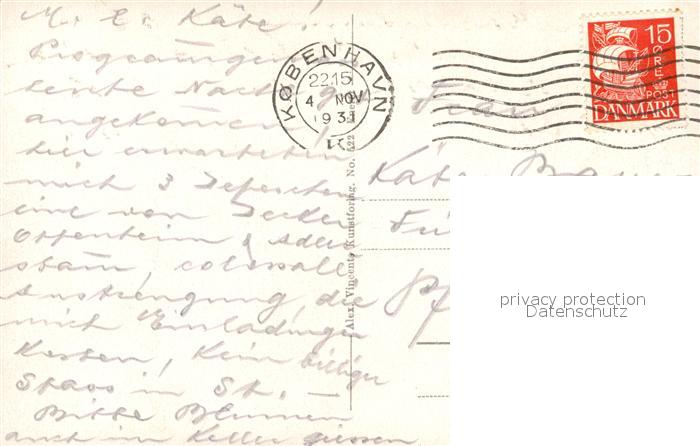 M. l. Käte!
heute Nacht
angekommen!
hier erwarteten
mich 3 Depeschen
eine von
Oppenheim &
colossale
Anstrengung die
mich Einladungen
Kosten, Kein billiger
Spass in St. —
Bitte Blumen
auch im Keller giessen
KØBENHAVN
22.15
4 NOV
1931
K
15
ØRE
POST
DANMARK
Frau
Käte
Alex Vincents Kunstforlag. No.
privacy protection
Datenschutz